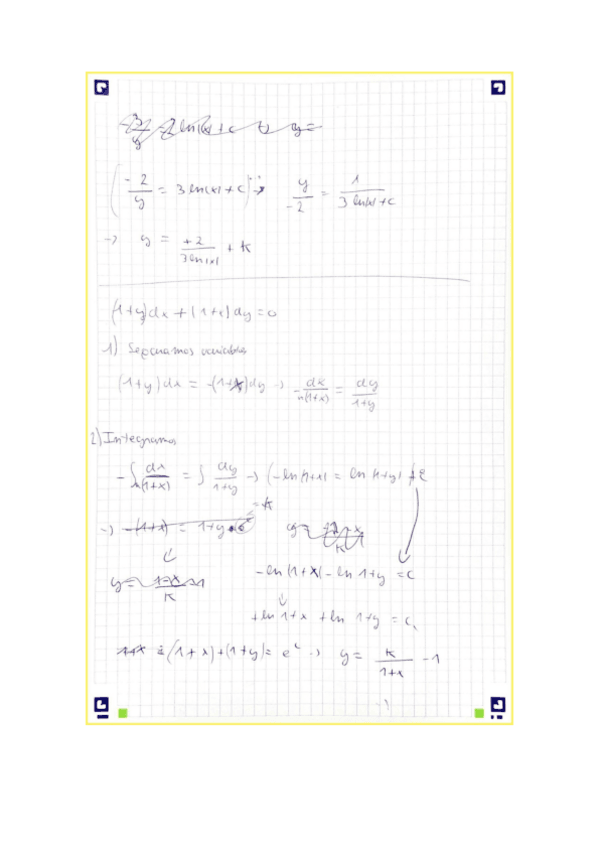 ( -2/y = 3 ln|x| + C )⁻¹ → y/-2 = 1/(3 ln|x| + C)
→ y = +2/(3 ln|x|) + K
(1+y)dx + (1+x)dy = 0
1) Separamos variables
(1+y)dx = -(1+x)dy → -dx/(1+x) = dy/(1+y)
2) Integramos
-∫ dx/(1+x) = ∫ dy/(1+y) → (-ln|1+x| = ln|1+y| + C
= K
→ -(1+x) = 1+y
y =
-ln|1+x| - ln 1+y = C
+ln 1+x + ln 1+y = C,
(1+x)+(1+y) = e^c → y = K/(1+x) - 1